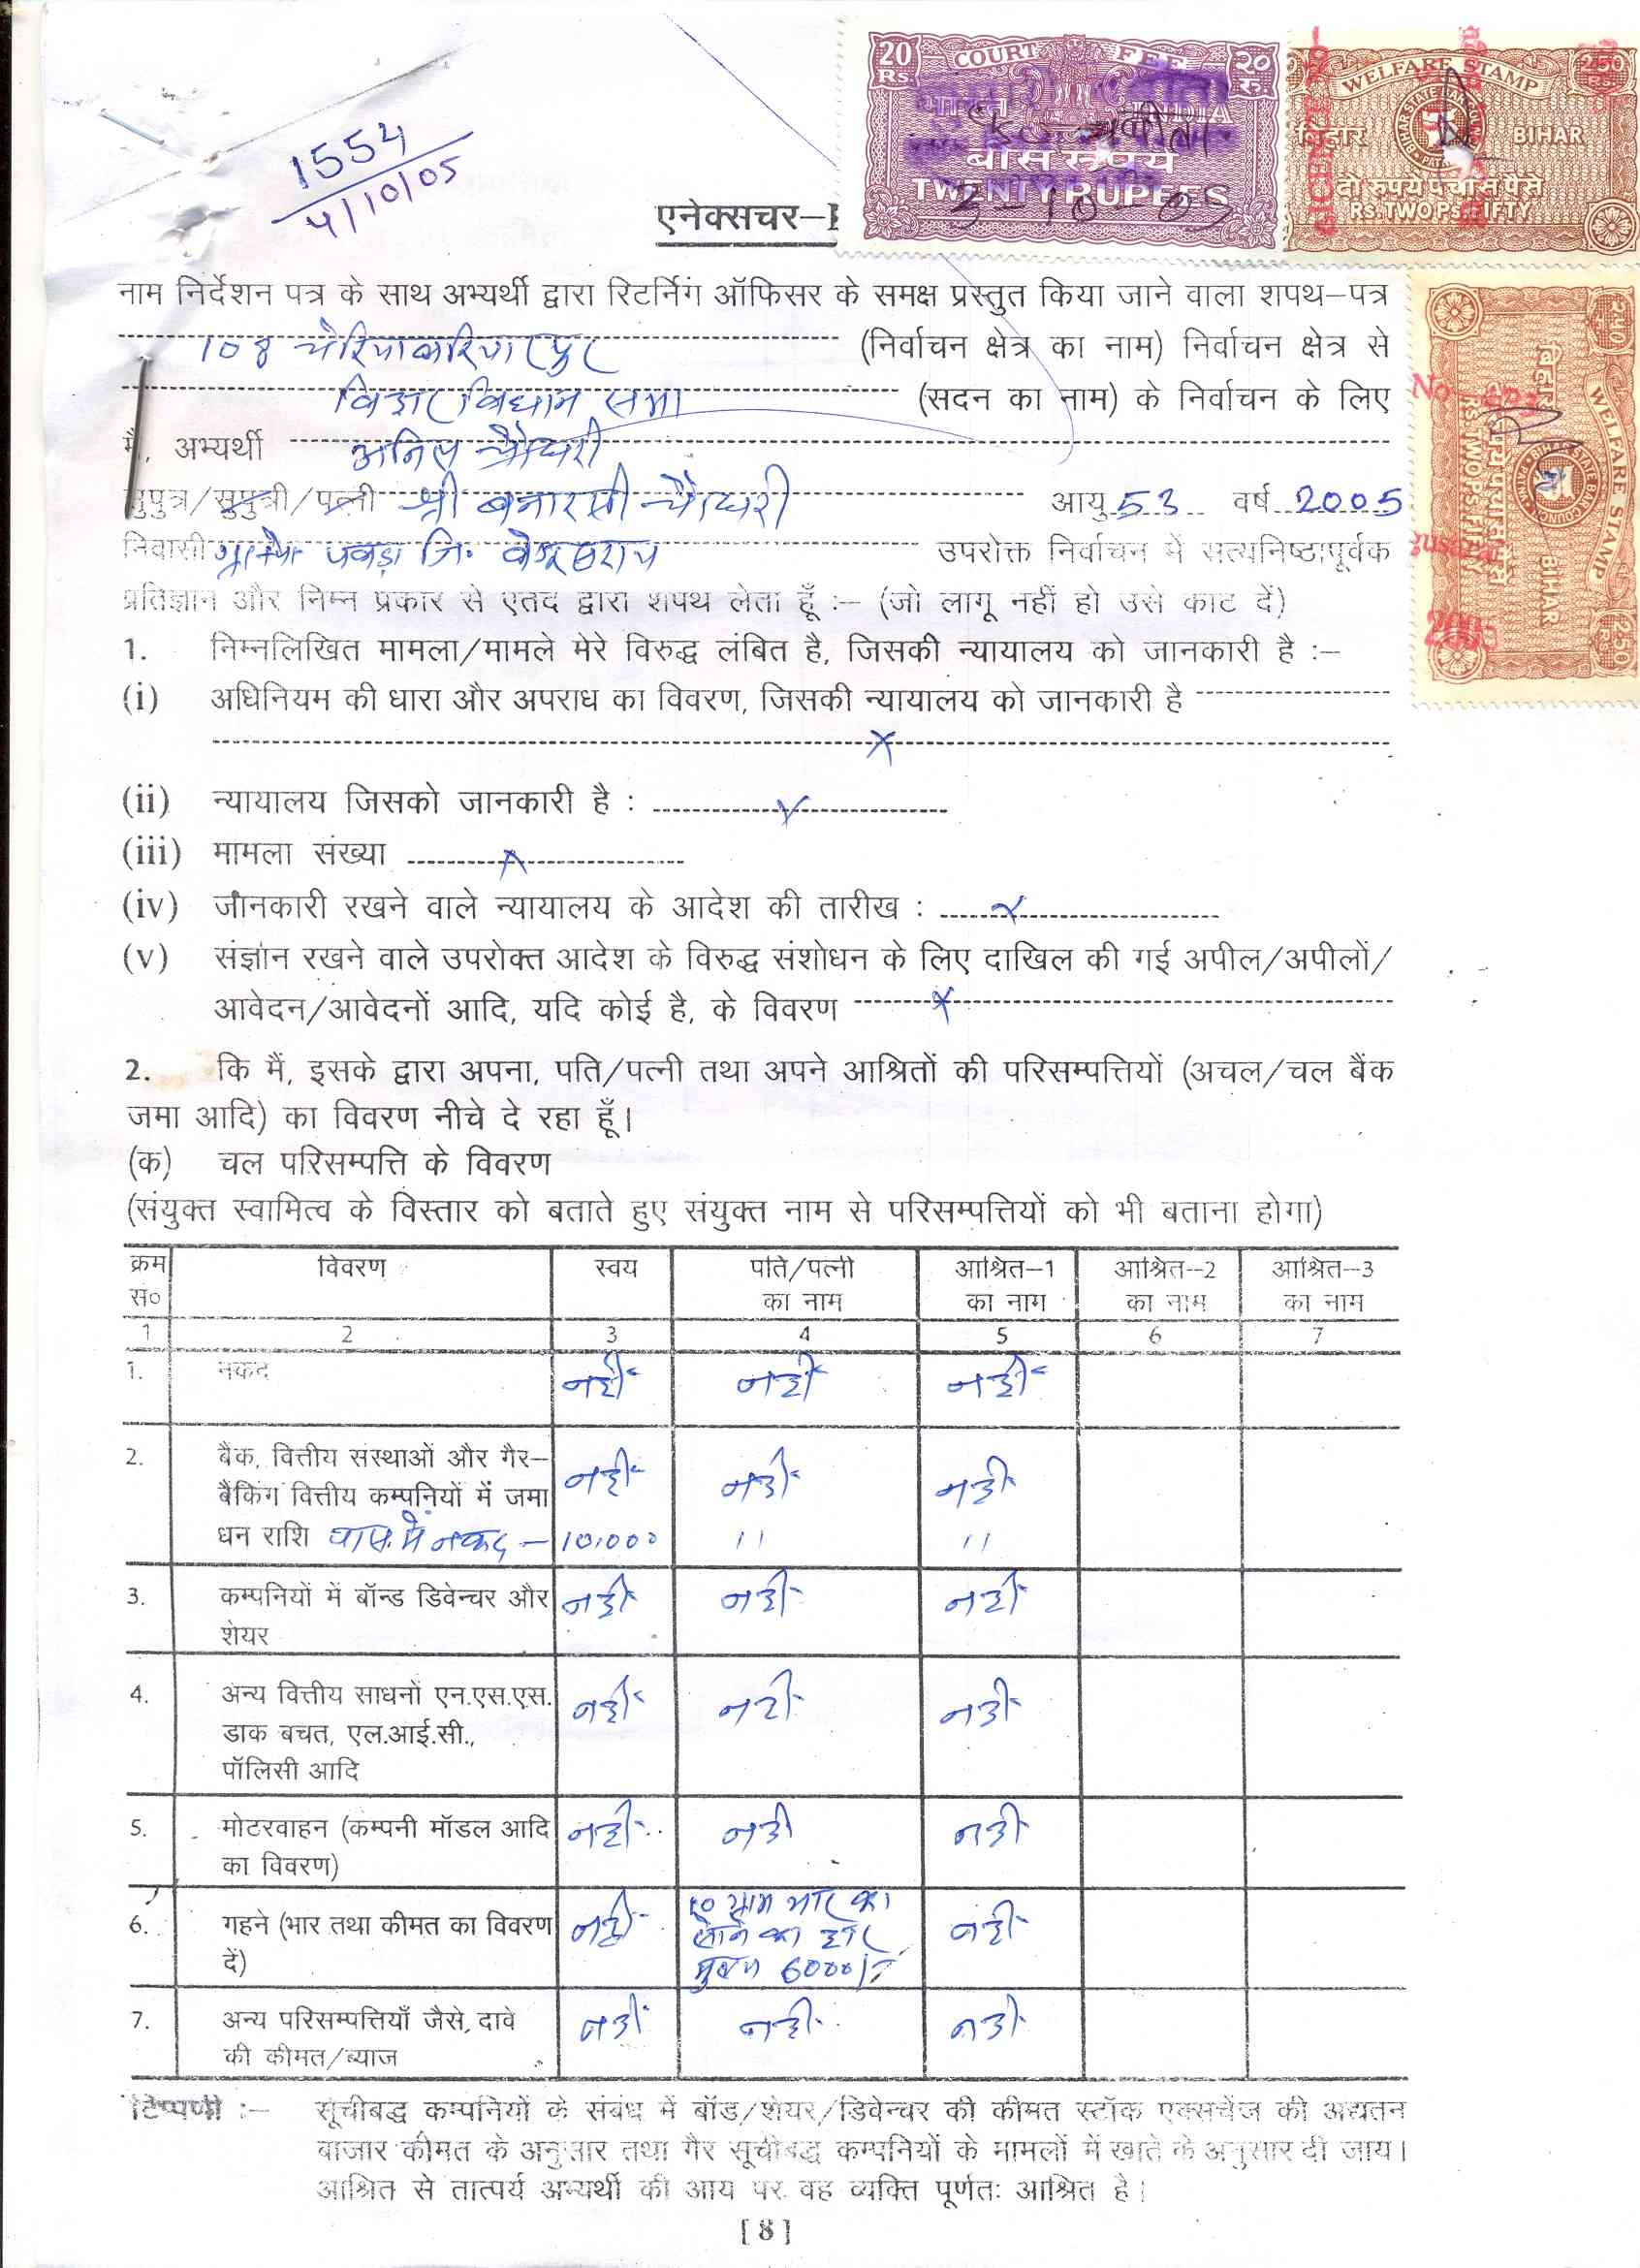 1554
4/10/05
20 Rs. COURT FEE २० रु.
INDIA
बीस रुपये
TWENTY RUPEES
3-10-05
WELFARE STAMP
बिहार BIHAR
दो रुपये पचास पैसे
RS. TWO PS. FIFTY
WELFARE STAMP
बिहार BIHAR
दो रुपये पचास पैसे
RS. TWO PS. FIFTY
2005
एनेक्सचर–I
नाम निर्देशन पत्र के साथ अभ्यर्थी द्वारा रिटर्निंग ऑफिसर के समक्ष प्रस्तुत किया जाने वाला शपथ–पत्र
108 चेरियाबरियारपुर (निर्वाचन क्षेत्र का नाम) निर्वाचन क्षेत्र से
बिहार विधान सभा (सदन का नाम) के निर्वाचन के लिए
मैं, अभ्यर्थी अनिल चौधरी
सुपुत्र/सुपुत्री/पत्नी श्री बनारसी चौधरी आयु 53 वर्ष 2005
निवासी ग्राम+पो० पबड़ा जि० बेगूसराय उपरोक्त निर्वाचन में सत्यनिष्ठापूर्वक
प्रतिज्ञान और निम्न प्रकार से एतद द्वारा शपथ लेता हूँ :– (जो लागू नहीं हो उसे काट दें)
1. निम्नलिखित मामला/मामले मेरे विरुद्ध लंबित है, जिसकी न्यायालय को जानकारी है :–
(i) अधिनियम की धारा और अपराध का विवरण, जिसकी न्यायालय को जानकारी है
X
(ii) न्यायालय जिसको जानकारी है : X
(iii) मामला संख्या X
(iv) जानकारी रखने वाले न्यायालय के आदेश की तारीख : X
(v) संज्ञान रखने वाले उपरोक्त आदेश के विरुद्ध संशोधन के लिए दाखिल की गई अपील/अपीलों/
आवेदन/आवेदनों आदि, यदि कोई है, के विवरण X
2. कि मैं, इसके द्वारा अपना, पति/पत्नी तथा अपने आश्रितों की परिसम्पत्तियों (अचल/चल बैंक
जमा आदि) का विवरण नीचे दे रहा हूँ।
(क) चल परिसम्पत्ति के विवरण
(संयुक्त स्वामित्व के विस्तार को बताते हुए संयुक्त नाम से परिसम्पत्तियों को भी बताना होगा)
क्रम विवरण स्वय पति/पत्नी आश्रित–1 आश्रित–2 आश्रित–3
स० का नाम का नाम का नाम का नाम
1 2 3 4 5 6 7
1. नकद नहीं नहीं नहीं
2. बैंक, वित्तीय संस्थाओं और गैर–
बैंकिंग वित्तीय कम्पनियों में जमा नहीं नहीं नहीं
धन राशि पास में नकद – 10,000 " "
3. कम्पनियों में बॉन्ड डिवेन्चर और नहीं नहीं नहीं
शेयर
4. अन्य वित्तीय साधनों एन.एस.एस. नहीं नहीं नहीं
डाक बचत, एल.आई.सी.,
पॉलिसी आदि
5. मोटरवाहन (कम्पनी मॉडल आदि नहीं नहीं नहीं
का विवरण)
6. गहने (भार तथा कीमत का विवरण नहीं १० ग्राम भार का नहीं
दें) सोने का हार
मुल्य 6000/-
7. अन्य परिसम्पत्तियाँ जैसे, दावे नहीं नहीं नहीं
की कीमत/ब्याज
टिप्पणी :– सूचीबद्ध कम्पनियों के संबंध में बॉड/शेयर/डिवेन्चर की कीमत स्टॉक एक्सचेंज की अद्यतन
बाजार कीमत के अनुसार तथा गैर सूचीबद्ध कम्पनियों के मामलों में खाते के अनुसार दी जाय।
आश्रित से तात्पर्य अभ्यर्थी की आय पर वह व्यक्ति पूर्णतः आश्रित है।
[ 8 ]